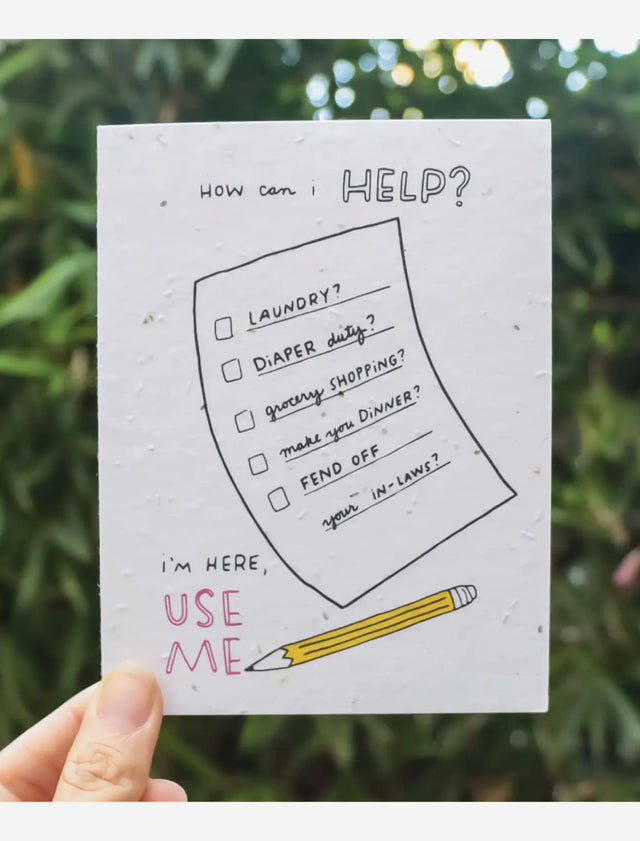 HOW can i HELP?
LAUNDRY?
DiAPER duty?
grocery SHOPPING?
make you DiNNER?
FEND OFF
your iN-LAWS?
i'M HERE,
USE
ME